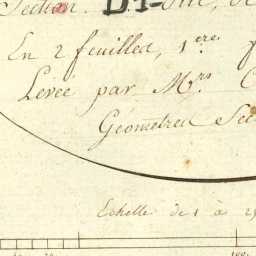 Section. D.1
En 2 feuilles, 1.ere
Levée par M.rs
Géometres Sec
Echelle de 1 à 2
100